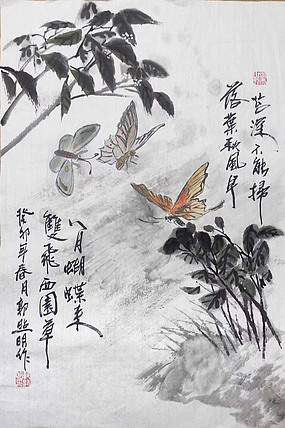 苔深不能掃
落葉秋風早
八月蝴蝶来
雙飛西園草
癸卯年春月郭照明作